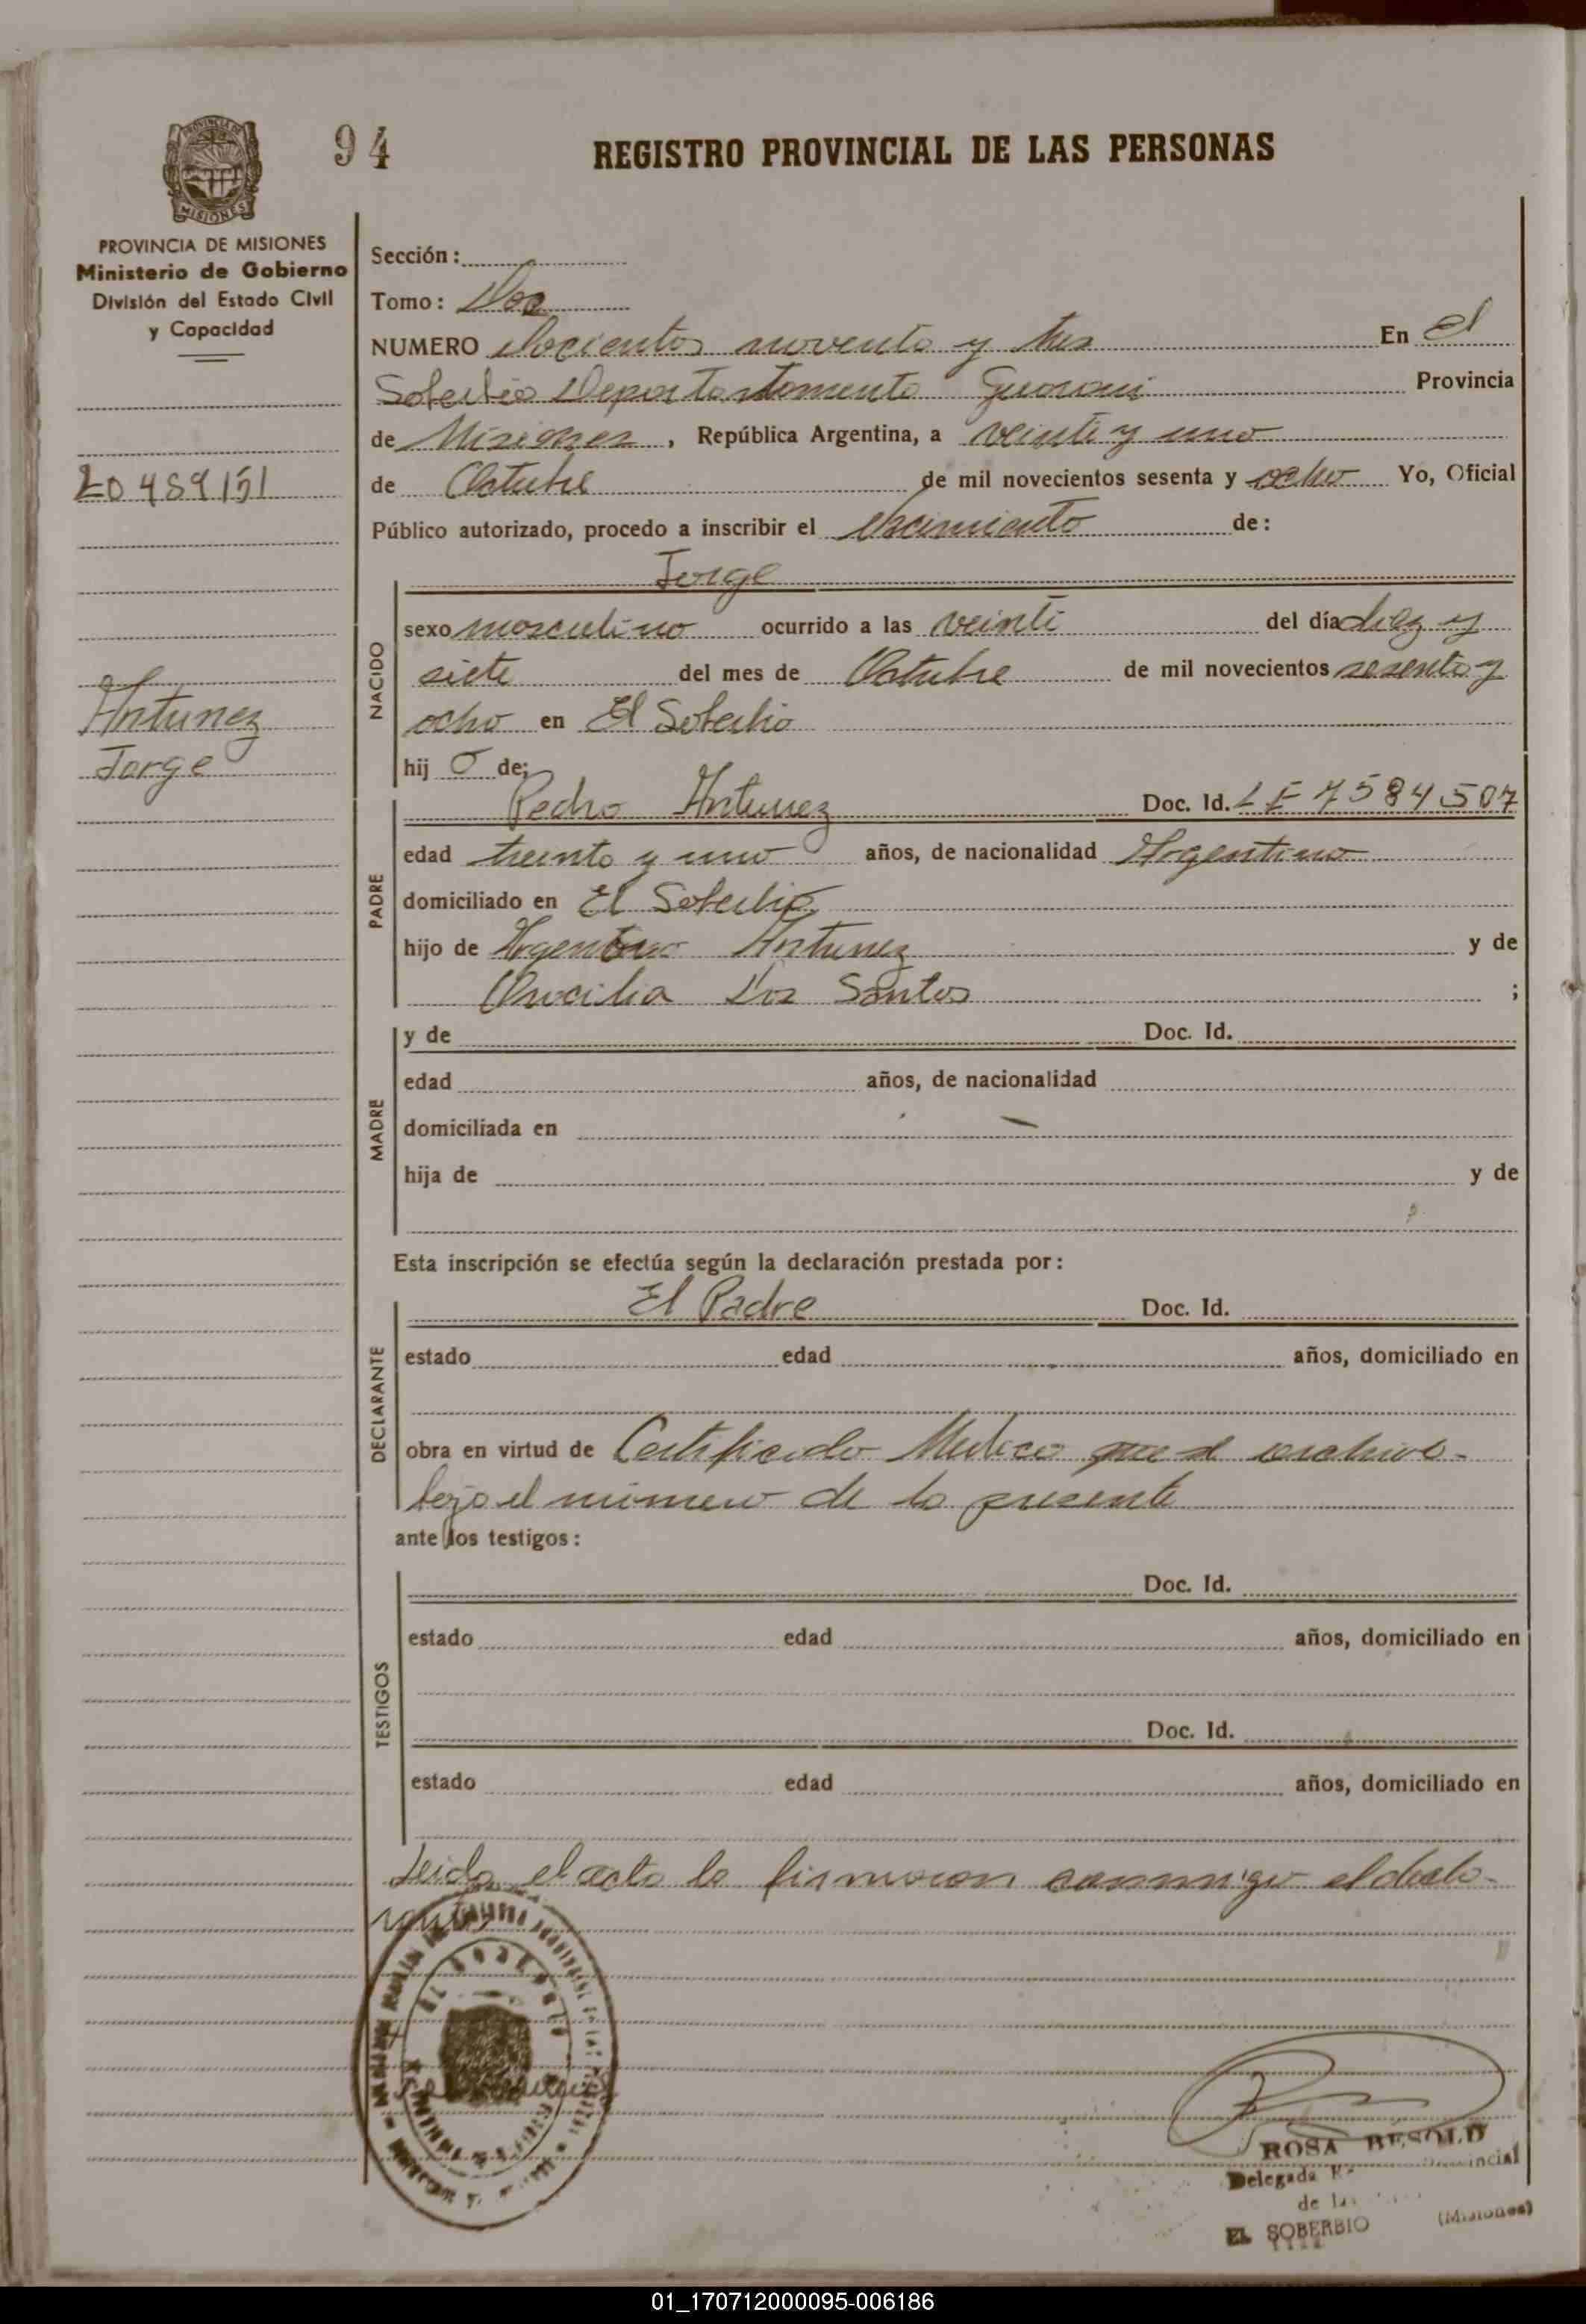 94
REGISTRO PROVINCIAL DE LAS PERSONAS
PROVINCIA DE MISIONES
MISIONES
PROVINCIA DE MISIONES
Ministerio de Gobierno
División del Estado Civil
y Capacidad
20489151
Antunez
Jorge
Sección:
Tomo: Dos
NUMERO Docientos noventa y tres En el
Soberbio Departastamento Guarani Provincia
de Misiones, República Argentina, a veinti y uno
de Octubre de mil novecientos sesenta y ocho Yo, Oficial
Público autorizado, procedo a inscribir el Nacimiento de:
Jorge
NACIDO
sexo masculino ocurrido a las veinti del día diez y
siete del mes de Octubre de mil novecientos sesenta y
ocho en El Soberbio
hij o de;
PADRE
Pedro Antunez Doc. Id. LE 7584507
edad treinta y uno años, de nacionalidad Argentino
domiciliado en El Soberbio
hijo de Argentino Antunez y de
Dos Santos ;
MADRE
y de Doc. Id.
edad años, de nacionalidad
domiciliada en
hija de y de
Esta inscripción se efectúa según la declaración prestada por:
DECLARANTE
El Padre Doc. Id.
estado edad años, domiciliado en
obra en virtud de Certificado Medico que se archivo
bajo el número de la presente
ante los testigos:
TESTIGOS
Doc. Id.
estado edad años, domiciliado en
Doc. Id.
estado edad años, domiciliado en
Leida el acta la firmaron conmigo el decla-
rante
ROSA BESOLD
Delegada
de las
EL SOBERBIO (Misiones)
01_170712000095-006186